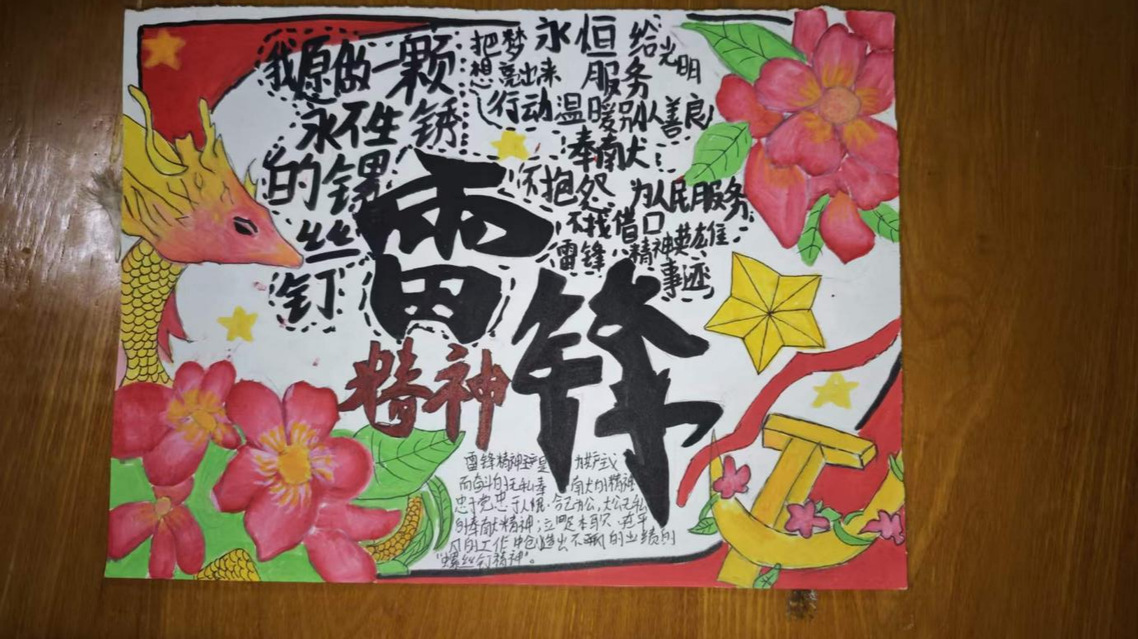 我原做一颗
永不生锈
的螺
丝
钉
把梦 永恒 给
想亮出来 服务 光明
行动 温暖别人 善良
奉献
不抱怨 为人民服务
不找借口
雷锋 精神英雄
事迹
雷
锋
精神
雷锋精神 是 为共产主义
而奋斗的无私奉献的精神
忠于党忠于人民,舍己为公,大公无私
的奉献精神;立足本职、在平
凡的工作中创造出不平凡的业绩的
“螺丝钉精神”。